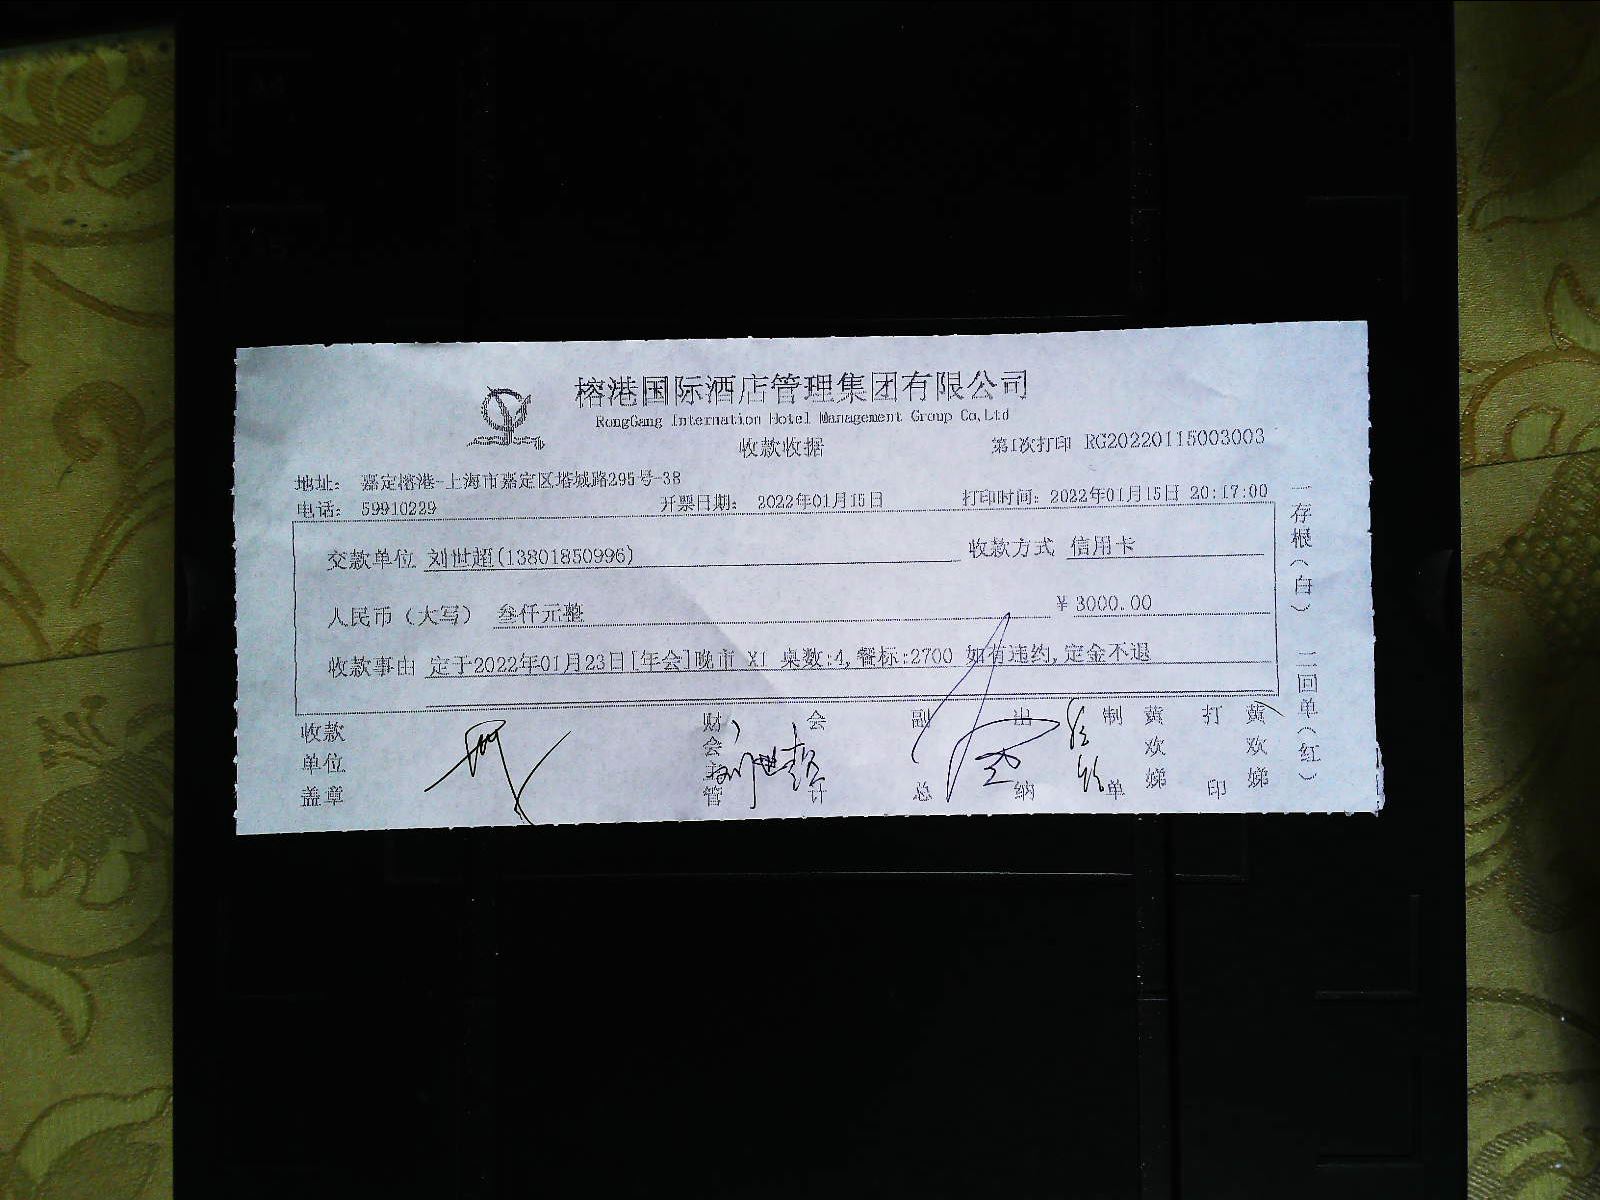 榕港国际酒店管理集团有限公司
RongGang Internation Hotel Management Group Co,Ltd
收款收据
第1次打印 RG20220115003003
地址: 嘉定榕港-上海市嘉定区塔城路295号-38
电话: 59910229 开票日期: 2022年01月15日 打印时间: 2022年01月15日 20:17:00
交款单位 刘世超(13801850996) 收款方式 信用卡
人民币（大写） 叁仟元整 ¥ 3000.00
收款事由 定于2022年01月23日[年会]晚市 X1 桌数:4,餐标:2700 如有违约,定金不退
收款单位盖章 财会主管 会计 刘世超 副总 出纳 制单 黄欢娣 打印 黄欢娣
一存根（白） 二回单（红）